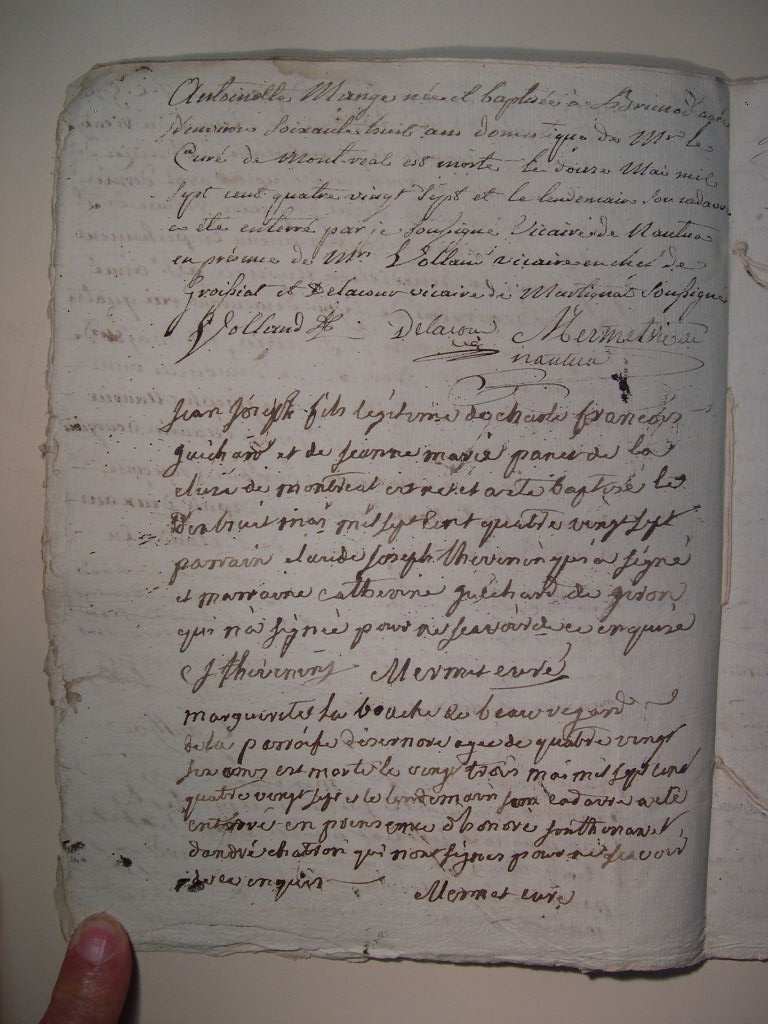 Antoinette Mange née et baptisée à Brenod agée
d'environ Soixante huit ans domestique de Mr le
Curé de Montreal est morte le douze Mai mil
sept cent quatre vingt sept et le lendemain son cadavre
a été enterré par je soussigné Vicaire de Nantua
en présence de Mrs Volland vicaire en chef de
Groissiat et Delacour vicaire de Martignat Soussignés
Volland Delacour Mermet vic de
nantua
jean joseph fils légitime de charle françois
guichard et de jeanne marie panet de la
cluse de montreal est né et a eté baptisé le
dixhuit mai mil sept cent quatre vingt sept
parrain claude joseph thevenin qui a signé
et marraine catherine guichard de giron
qui n'a signée pour ne scavoir de ce enquise
C J thevenin Mermet curé
marguerite la bouche de beauregard
de la parroisse d'isernore agee de quatre vingt
six ans est morte le vingt trois mai mil sept cent
quatre vingt sept et le lendemain son cadavre a eté
enterré en presence d'honoré jonthenaz et
d'andré chatron qui n'ont signes pour ne scavoir
de ce enquis
Mermet curé